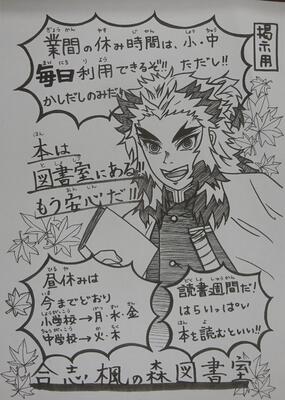 掲示用
業間の休み時間は、小・中
毎日利用できるぞ!! ただし!!
かしだしのみだ!!
本は
図書室にある
もう安心だ!!
昼休みは
今までどおり
小学校→月・水・金
中学校→火・木
読書週間だ!
はらいっぱい
本を読むといい!!
合志楓の森図書室